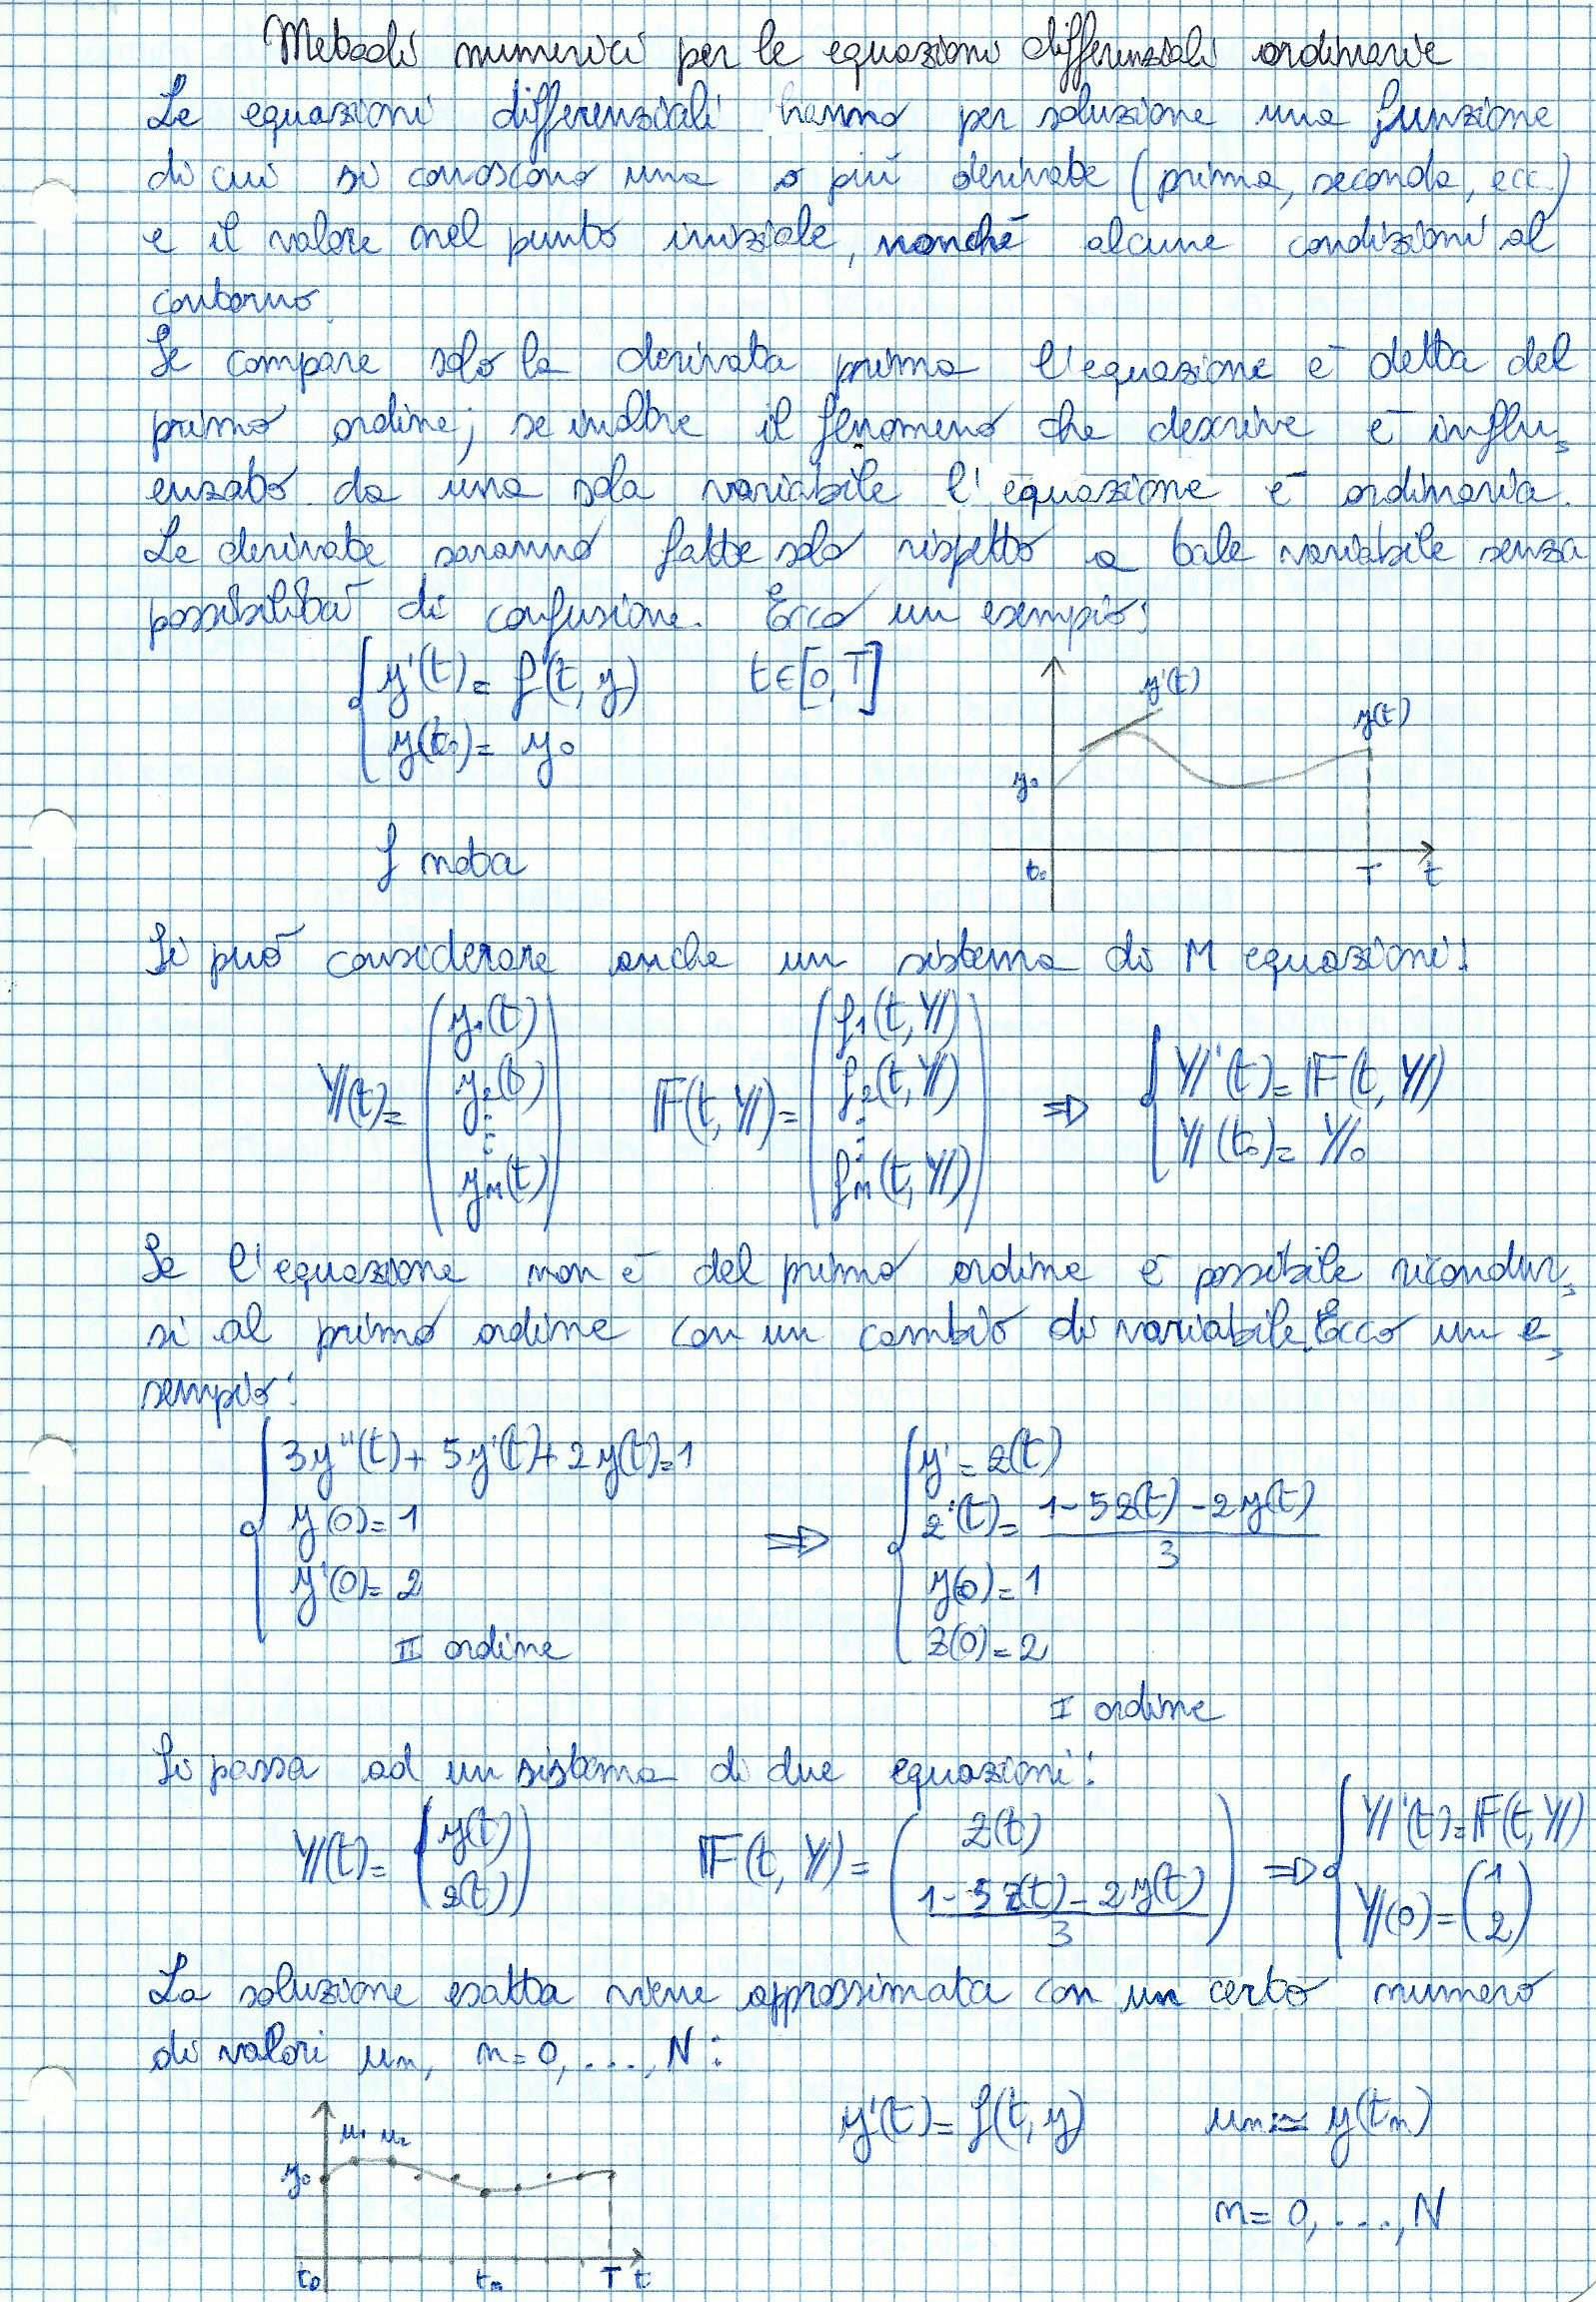 Metodi numerici per le equazioni differenziali ordinarie
Le equazioni differenziali hanno per soluzione una funzione
di cui si conoscono una o più derivate (prima, seconda, ecc.)
e il valore nel punto iniziale, nonché alcune condizioni al
contorno.
Se compare solo la derivata prima l'equazione è detta del
primo ordine; se inoltre il fenomeno che descrive è influ=
enzato da una sola variabile l'equazione è ordinaria.
Le derivate saranno fatte solo rispetto a tale variabile senza
possibilità di confusione. Ecco un esempio:
y'(t) = f(t, y) t∈[0, T]
y(t₀) = y₀
y'(t)
y(t)
y₀
t₀ T t
f nota
Si può considerare anche un sistema di M equazioni:
𝕐(t) = (y₁(t) y₂(t) ⋮ y_M(t)) 𝔽(t, 𝕐) = (f₁(t, 𝕐) f₂(t, 𝕐) ⋮ f_M(t, 𝕐)) ⇒ { 𝕐'(t) = 𝔽(t, 𝕐)
𝕐(t₀) = 𝕐₀
Se l'equazione non è del primo ordine è possibile ricondur=
si al primo ordine con un cambio di variabile. Ecco un e=
sempio:
3y''(t) + 5y'(t) + 2y(t) = 1
y(0) = 1
y'(0) = 2
II ordine
⇒
y' = z(t)
z'(t) = (1 - 5z(t) - 2y(t))/3
y(0) = 1
z(0) = 2
I ordine
Si passa ad un sistema di due equazioni:
𝕐(t) = (y(t) z(t)) 𝔽(t, 𝕐) = (z(t) (1 - 5z(t) - 2y(t))/3) ⇒ { 𝕐'(t) = 𝔽(t, 𝕐)
𝕐(0) = (1 2)
La soluzione esatta viene approssimata con un certo numero
di valori uₙ, n = 0, ..., N:
y'(t) = f(t, y) uₙ ≃ y(tₙ)
n = 0, ..., N
u₁ u₂
y₀
t₀ tₙ T t